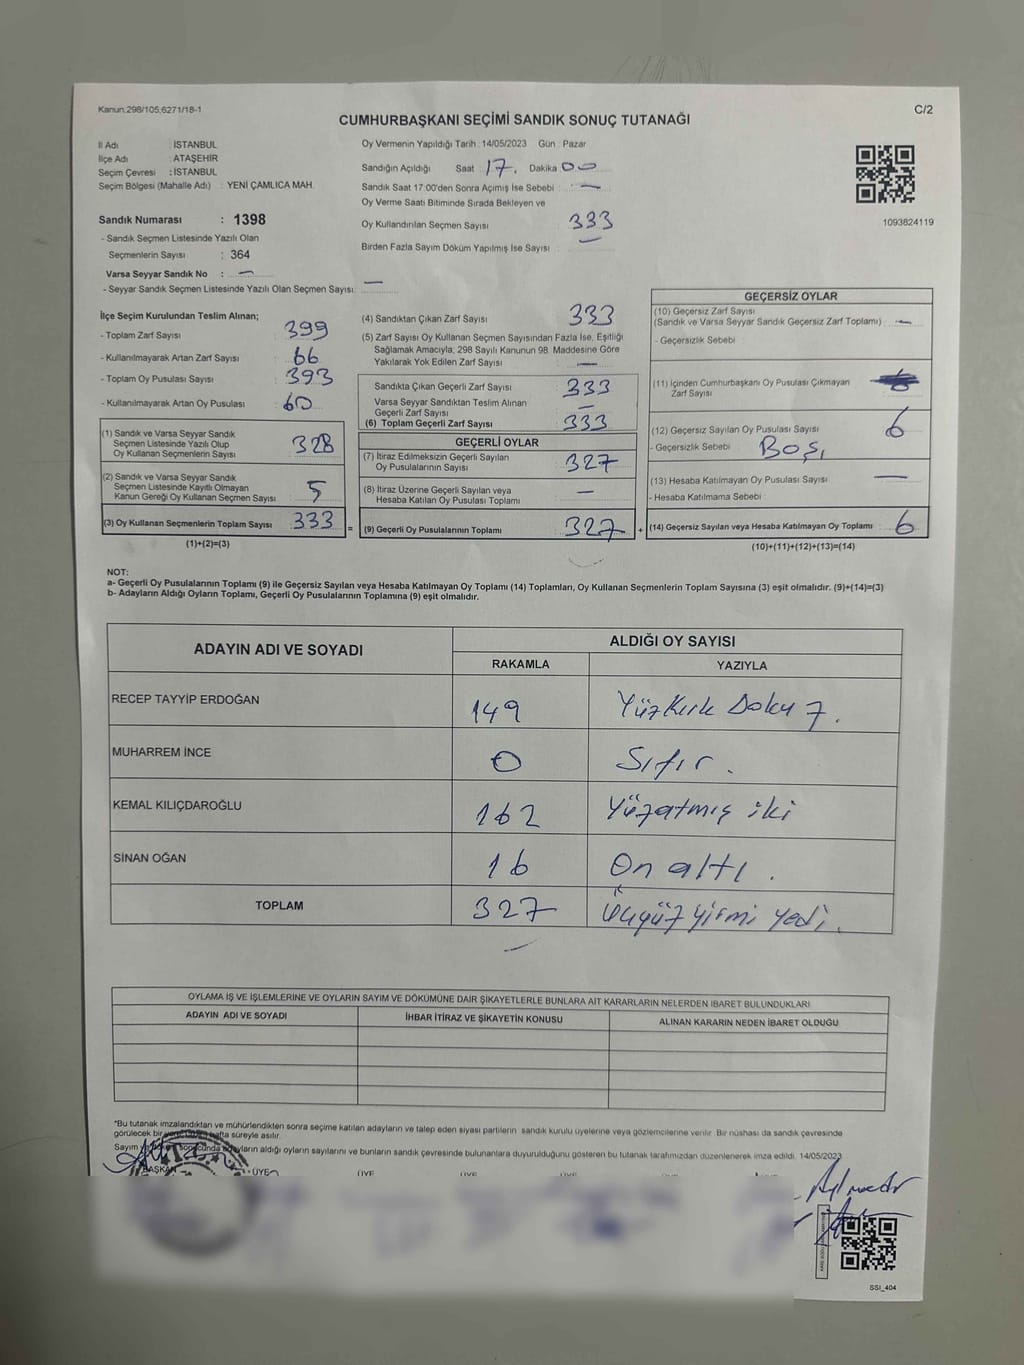 Kanun.298/105,6271/18-1
C/2
CUMHURBAŞKANI SEÇİMİ SANDIK SONUÇ TUTANAĞI
İl Adı : İSTANBUL
İlçe Adı : ATAŞEHİR
Seçim Çevresi : İSTANBUL
Seçim Bölgesi (Mahalle Adı) : YENİ ÇAMLICA MAH.
Sandık Numarası : 1398
- Sandık Seçmen Listesinde Yazılı Olan
Seçmenlerin Sayısı : 364
Varsa Seyyar Sandık No : —
- Seyyar Sandık Seçmen Listesinde Yazılı Olan Seçmen Sayısı: —
Oy Vermenin Yapıldığı Tarih : 14/05/2023 Gün : Pazar
Sandığın Açıldığı Saat : 17. Dakika : 00
Sandık Saat 17:00'den Sonra Açımış İse Sebebi : —
Oy Verme Saati Bitiminde Sırada Bekleyen ve
Oy Kullandırılan Seçmen Sayısı 333
Birden Fazla Sayım Döküm Yapılmış İse Sayısı : —
1093824119
İlçe Seçim Kurulundan Teslim Alınan;
- Toplam Zarf Sayısı : 399
- Kullanılmayarak Artan Zarf Sayısı : 66
- Toplam Oy Pusulası Sayısı : 393
- Kullanılmayarak Artan Oy Pusulası : 60
(1) Sandık ve Varsa Seyyar Sandık
Seçmen Listesinde Yazılı Olup
Oy Kullanan Seçmenlerin Sayısı : 328
(2) Sandık ve Varsa Seyyar Sandık
Seçmen Listesinde Kayıtlı Olmayan
Kanun Gereği Oy Kullanan Seçmen Sayısı : 5
(3) Oy Kullanan Seçmenlerin Toplam Sayısı : 333 =
(1)+(2)=(3)
(4) Sandıktan Çıkan Zarf Sayısı : 333
(5) Zarf Sayısı Oy Kullanan Seçmen Sayısından Fazla İse, Eşitliği
Sağlamak Amacıyla, 298 Sayılı Kanunun 98. Maddesine Göre
Yakılarak Yok Edilen Zarf Sayısı : —
Sandıkta Çıkan Geçerli Zarf Sayısı : 333
Varsa Seyyar Sandıktan Teslim Alınan
Geçerli Zarf Sayısı : —
(6) Toplam Geçerli Zarf Sayısı : 333
GEÇERLİ OYLAR
(7) İtiraz Edilmeksizin Geçerli Sayılan
Oy Pusulalarının Sayısı : 327
(8) İtiraz Üzerine Geçerli Sayılan veya
Hesaba Katılan Oy Pusulası Toplamı : —
(9) Geçerli Oy Pusulalarının Toplamı : 327 +
GEÇERSİZ OYLAR
(10) Geçersiz Zarf Sayısı
(Sandık ve Varsa Seyyar Sandık Geçersiz Zarf Toplamı) : —
- Geçersizlik Sebebi :
(11) İçinden Cumhurbaşkanı Oy Pusulası Çıkmayan
Zarf Sayısı :
(12) Geçersiz Sayılan Oy Pusulası Sayısı : 6
- Geçersizlik Sebebi : Boş,
(13) Hesaba Katılmayan Oy Pusulası Sayısı : —
- Hesaba Katılmama Sebebi :
(14) Geçersiz Sayılan veya Hesaba Katılmayan Oy Toplamı : 6
(10)+(11)+(12)+(13)=(14)
NOT:
a- Geçerli Oy Pusulalarının Toplamı (9) ile Geçersiz Sayılan veya Hesaba Katılmayan Oy Toplamı (14) Toplamları, Oy Kullanan Seçmenlerin Toplam Sayısına (3) eşit olmalıdır. (9)+(14)=(3)
b- Adayların Aldığı Oyların Toplamı, Geçerli Oy Pusulalarının Toplamına (9) eşit olmalıdır.
ADAYIN ADI VE SOYADI
ALDIĞI OY SAYISI
RAKAMLA YAZIYLA
RECEP TAYYİP ERDOĞAN 149 Yüzkırk Dokuz.
MUHARREM İNCE 0 Sıfır.
KEMAL KILIÇDAROĞLU 162 Yüzatmış iki
SİNAN OĞAN 16 On altı.
TOPLAM 327 Üçyüz yirmi yedi.
OYLAMA İŞ VE İŞLEMLERİNE VE OYLARIN SAYIM VE DÖKÜMÜNE DAİR ŞİKAYETLERLE BUNLARA AİT KARARLARIN NELERDEN İBARET BULUNDUKLARI
ADAYIN ADI VE SOYADI İHBAR İTİRAZ VE ŞİKAYETİN KONUSU ALINAN KARARIN NEDEN İBARET OLDUĞU
*Bu tutanak imzalandıktan ve mühürlendikten sonra seçime katılan adayların ve talep eden siyasi partilerin sandık kurulu üyelerine veya gözlemcilerine verilir. Bir nüshası da sandık çevresinde
görülecek bir süreyle asılır.
Sayım adayların aldığı oyların sayılarını ve bunların sandık çevresinde bulunanlara duyurulduğunu gösteren bu tutanak tarafımızdan düzenlenerek imza edildi. 14/05/2023
BAŞKAN ÜYE ÜYE ÜYE ÜYE
SSİ_404